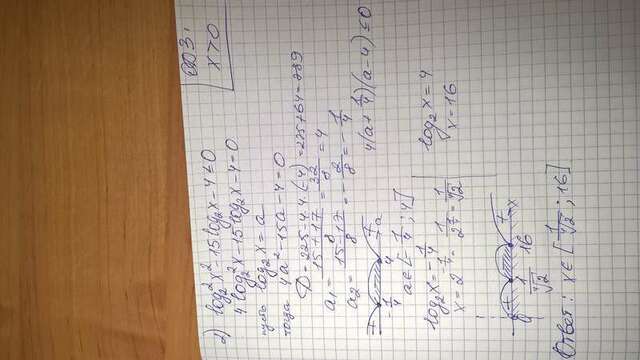 ОДЗ:
x>0
2) log₂²x² - 15log₂x - 4 ≤ 0
4log₂²x - 15log₂x - 4 = 0
пусть log₂x = a
тогда 4a² - 15a - 4 = 0
D = 225 - 4·4·(-4) = 225 + 64 = 289
a₁ = (15+17)/8 = 32/8 = 4
a₂ = (15-17)/8 = -2/8 = -1/4
4(a + 1/4)(a - 4) ≤ 0
+ - + a
-1/4 4
a∈[-1/4; 4]
log₂x = -1/4
x = 2^(-1/4) = 1/2^(1/4) = 1/⁴√2
log₂x = 4
x = 16
+ x
0 1/⁴√2 16
Ответ: x∈[1/⁴√2; 16]